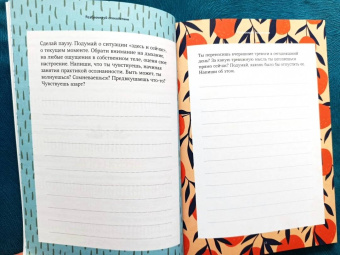 Сделай паузу. Подумай о ситуации «здесь и сейчас»,
о текущем моменте. Обрати внимание на дыхание,
на любые ощущения в собственном теле, оцени свое
настроение. Напиши, что ты чувствуешь, начиная
занятия практикой осознанности. Быть может, ты
волнуешься? Сомневаешься? Предвкушаешь что-то?
Чувствуешь азарт?
Ты переносишь вчерашние тревоги в сегодняшний
день? За какую тревожную мысль ты цепляешься
прямо сейчас? Подумай, каково было бы отпустить ее.
Напиши об этом.